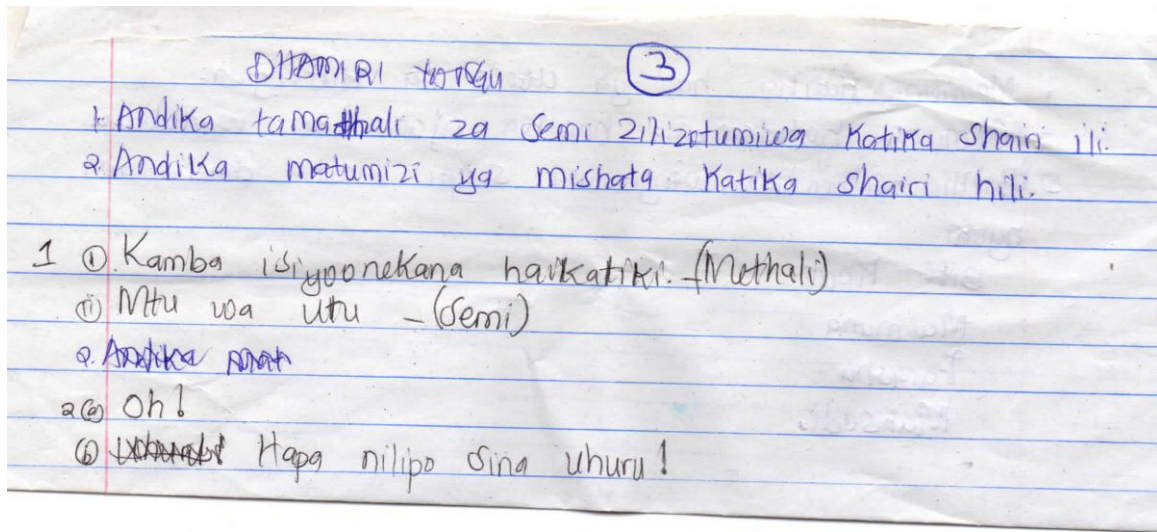 DHAMIRI YANGU 3
1. Andika tamathali za semi zilizotumiwa Katika shairi ili.
2. Andika matumizi ya mishata Katika shairi hili.
1 (i) Kamba isiyoonekana haikatiki. - (Methali)
(ii) Mtu wa utu - (Semi)
2. Andika
2 (a) Oh!
(b) Hapa nilipo sina uhuru!